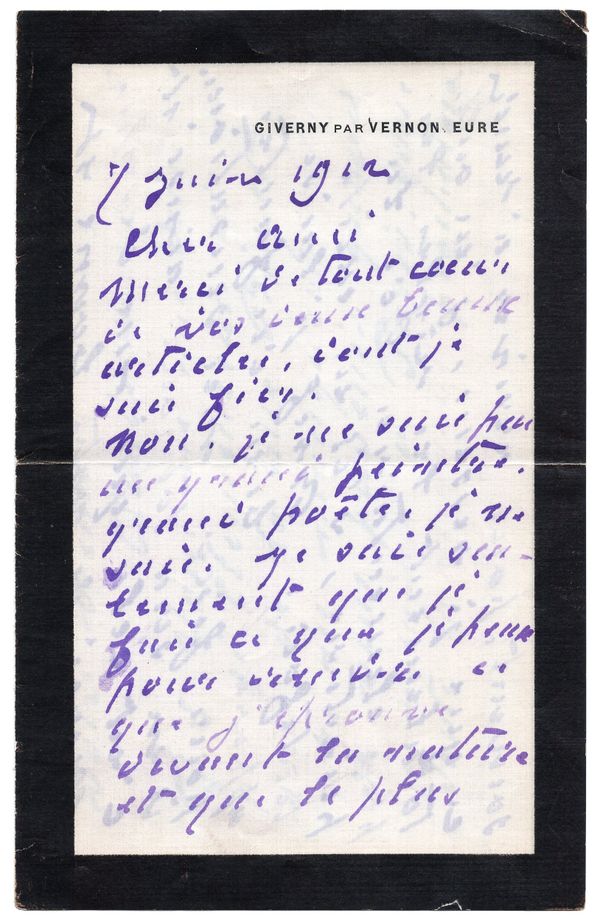 GIVERNY PAR VERNON. EURE
7 Juin 1912
Cher ami
Merci de tout coeur
de vos deux beaux
articles, dont je
suis fier.
Non, je ne suis pas
un grand peintre.
grand poëte, je ne
sais. je sais seu-
lement que je
fais ce que je peux
pour rendre ce
que j'éprouve
devant la nature
et que le plus